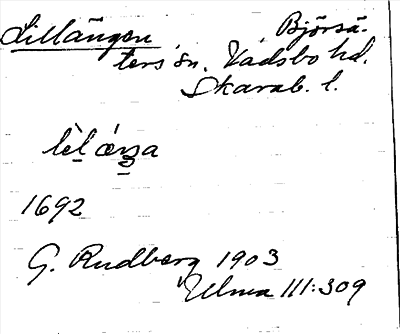 Lillängen Björsä-
ters sn. Vadsbo hd.
Skarab. l.
lèl ǽŋa
1692
G. Rudberg 1903
Ulma 111:309